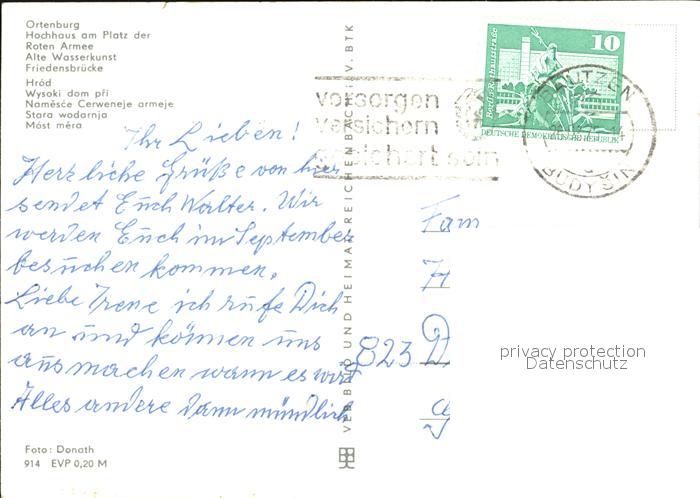 Ortenburg
Hochhaus am Platz der
Roten Armee
Alte Wasserkunst
Friedensbrücke
Hród
Wysoki dom při
Naměsće Cerweneje armeje
Stara wodarnja
Móst měra
Ihr Lieben!
Herzliche Grüße von hier
sendet Euch Walter. Wir
werden Euch im September
besuchen kommen.
Liebe Irene ich rufe Dich
an und können uns
ausmachen wann es wird
Alles andere dann mündlich
Foto: Donath
914 EVP 0,20 M
VER BILD UND HEIMAT REICHENBACH i. V. BTK
vorsorgen
versichern
sichert sein
10
Berlin, Rathausstraße
DEUTSCHE DEMOKRATISCHE REPUBLIK
BAUTZEN
BUDYŠIN
Fam
H
823 D
privacy protection
Datenschutz